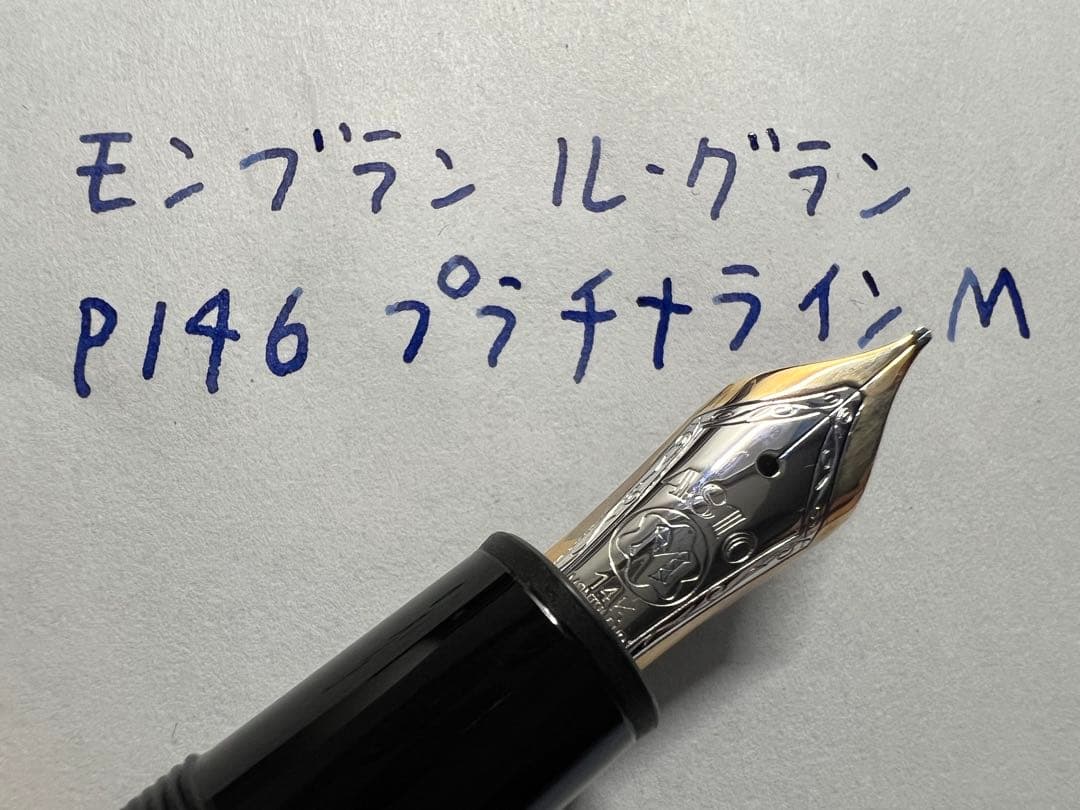 モンブラン ル・グラン
P146 プラチナライン M
4810
14K
MONTBLANC